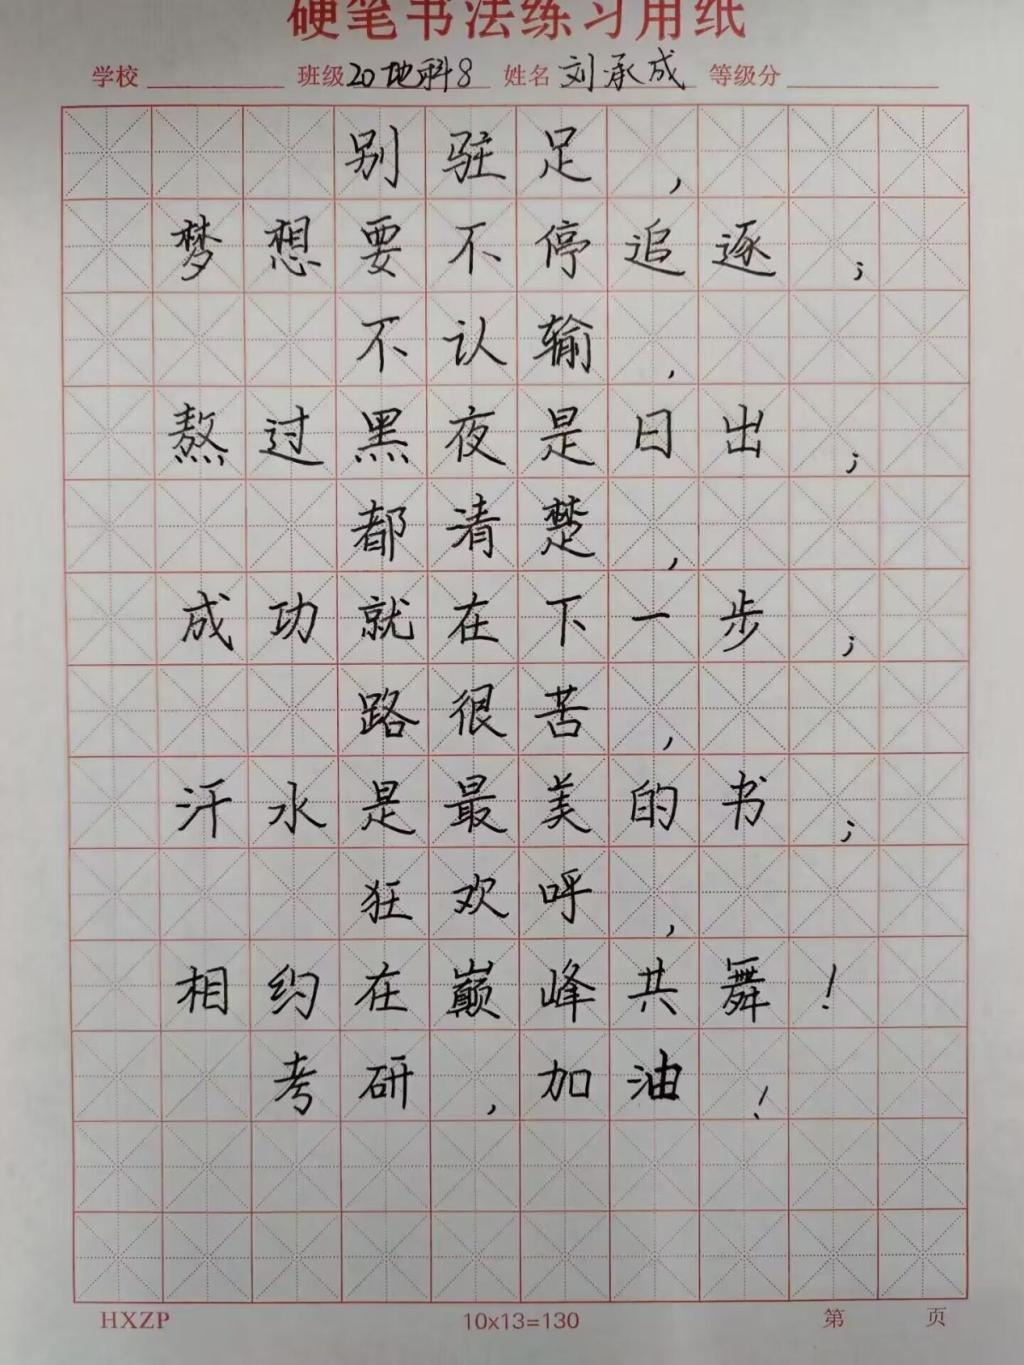 硬笔书法练习用纸
学校 班级20地科8 姓名 刘承成 等级分
别驻足，
梦想要不停追逐；
不认输，
熬过黑夜是日出；
都清楚，
成功就在下一步；
路很苦，
汗水是最美的书；
狂欢呼，
相约在巅峰共舞！
考研，加油！
HXZP 10x13=130 第 页